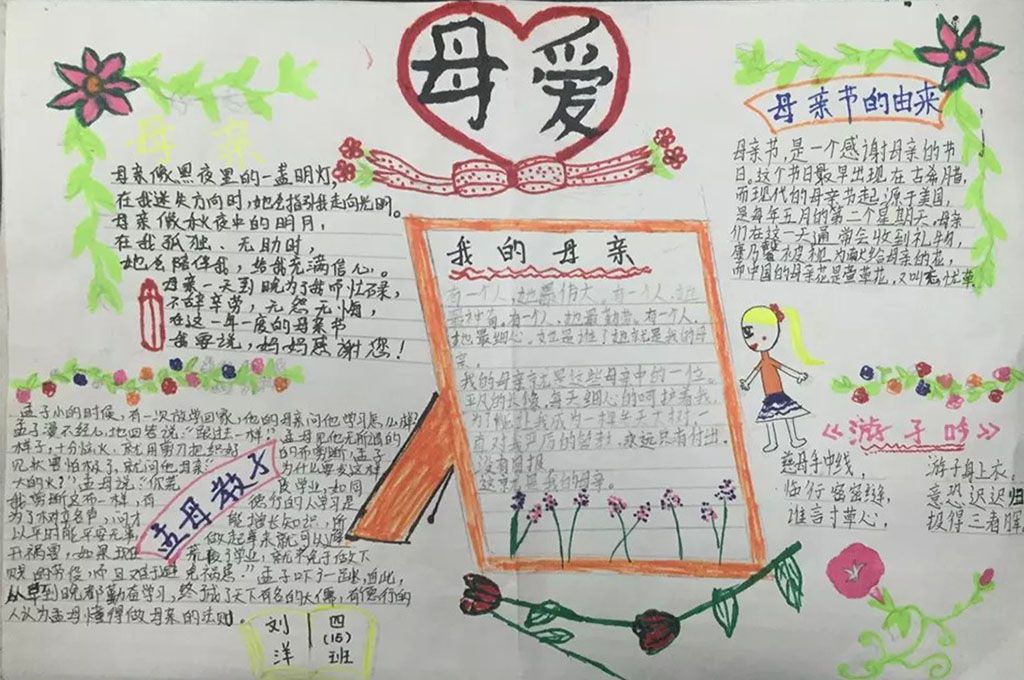 母爱
母亲
母亲像黑夜里的一盏明灯,
在我迷失方向时,她会指引我走向光明。
母亲像冰夜中的明月,
在我孤独、无助时,
她会陪伴我,给我充满信心。
母亲一天到晚为了我们忙碌,
不辞辛劳,无怨无悔,
在这一年一度的母亲节
我要说,妈妈感谢您!
母亲节的由来
母亲节,是一个感谢母亲的节
日。这个节日最早出现在古希腊,
而现代的母亲节起源于美国,
是每年五月的第二个星期天,母亲
们在这一天通常会收到礼物,
康乃馨被视为献给母亲的花,
而中国的母亲花是萱草花,又叫忘忧草。
我的母亲
有一个人,她最伟大。有一个人,她
有一个人,她最勤劳。有一个人,
她最细心。她是谁?她就是我的母
亲。
我的母亲就是这些母亲中的一位。
平凡的长像,每天细心的呵护着我,
永远只有付出,
没有回报。
这就是我的母亲。
孟母教子
孟子小的时候,有一次放学回家,他的母亲问他学习怎么样
孟子漫不经心地回答说:“跟过去一样”孟母见他无所谓的
样子,十分恼火,就用剪刀把织好的布剪断,孟子
见状害怕极了,就问他母亲:为什么要发这样
大的火?”孟母说:“你荒废学业,如同
我剪断这布一样,有德行的人学习是
能增长知识,所
做起事来就可以避
开祸害,如果现在荒废了学业,就不免于做下
贱的劳役,而且难于避免祸患”孟子吓了一跳,自此,
从早到晚都勤奋学习,终成了天下有名的大儒,有德行的
人认为孟母懂得做母亲的法则。
《游子吟》
慈母手中线, 游子身上衣,
临行密密缝, 意恐迟迟归
谁言寸草心, 报得三春晖
刘洋
四(15)班